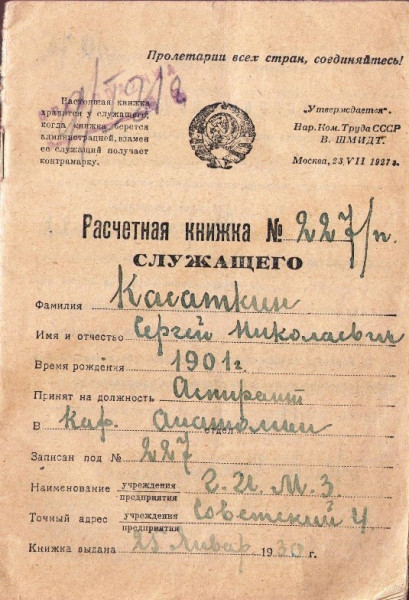 Пролетарии всех стран, соединяйтесь!
Настоящая книжка
хранится у служащего,
когда книжка берется
администрацией, взамен
ее служащий получает
контрамарку.
„Утверждается“.
Нар. Ком. Труда СССР
В. ШМИДТ.
Москва, 23/VII 1927 г.
Расчетная книжка № 227/п.
СЛУЖАЩЕГО
Фамилия Касаткин
Имя и отчество Сергей Николаевич
Время рождения 1901 г.
Принят на должность Аспирант
В каф. Анатомии отдел
Записан под № 227
Наименование учреждения предприятия Г. И. М. З.
Точный адрес учреждения предприятия Советский 4
Книжка выдана 25 Январ 1930 г.